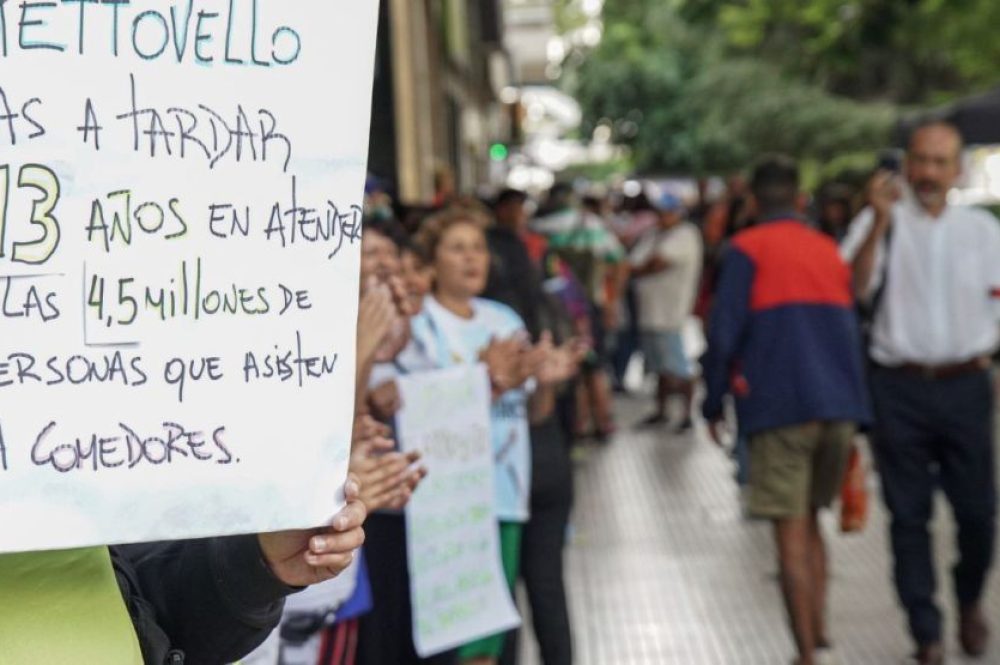 ETTOVELLO
AS A TARDAR
13 AÑOS EN ATENDER
LAS 4,5 MILLONES DE
PERSONAS QUE ASISTEN
A COMEDORES.